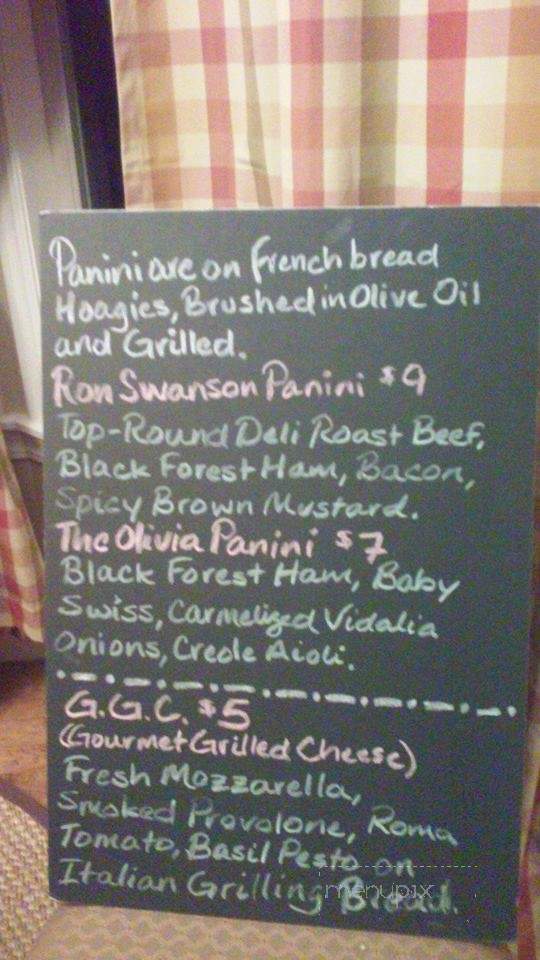 Panini are on French bread
Hoagies, Brushed in Olive Oil
and Grilled.
Ron Swanson Panini $9
Top-Round Deli Roast Beef,
Black Forest Ham, Bacon,
Spicy Brown Mustard.
The Olivia Panini $7
Black Forest Ham, Baby
Swiss, Carmelized Vidalia
Onions, Creole Aioli.
G.G.C. $5
(Gourmet Grilled Cheese)
Fresh Mozzarella,
Smoked Provolone, Roma
Tomato, Basil Pesto on
Italian Grilling Bread.
menupix